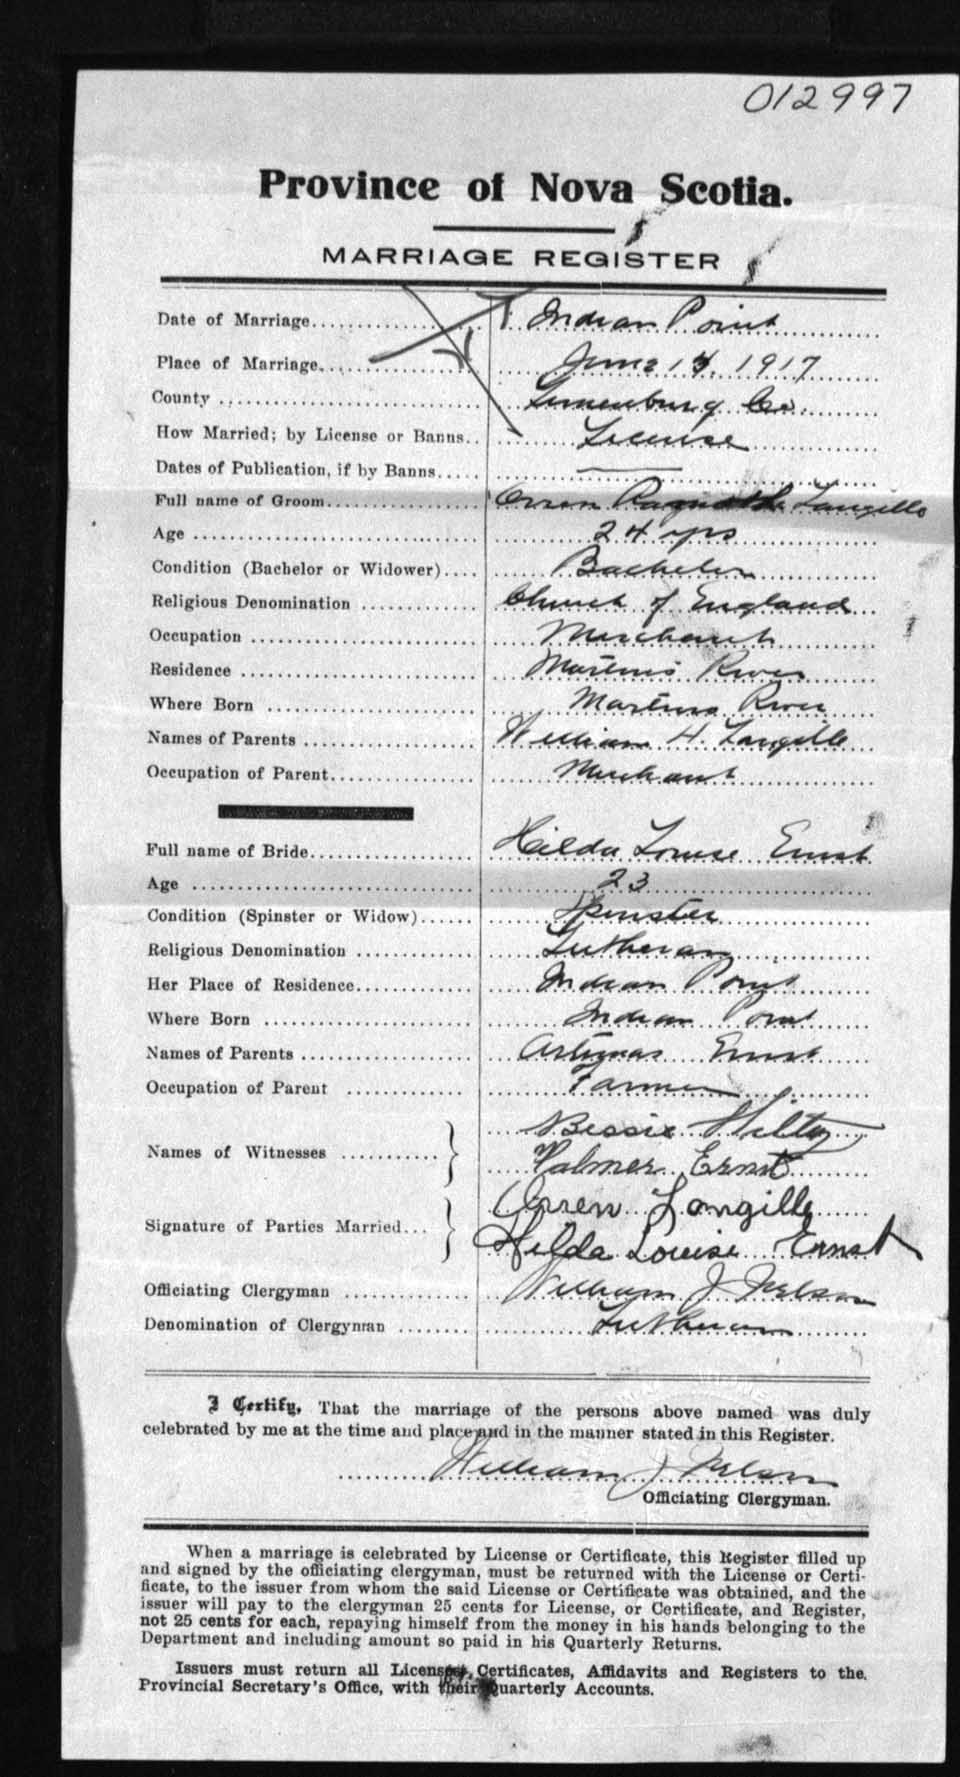 012997
Province of Nova Scotia.
MARRIAGE REGISTER
Date of Marriage Indian Point
Place of Marriage June 13, 1917
County Lunenburg Co.
How Married; by License or Banns License
Dates of Publication, if by Banns
Full name of Groom Orren Langille
Age 24 yrs
Condition (Bachelor or Widower) Bachelor
Religious Denomination Church of England
Occupation Merchant
Residence Martins River
Where Born Martins River
Names of Parents William H. Langille
Occupation of Parent Merchant
Full name of Bride Hilda Louise Ernst
Age 23
Condition (Spinster or Widow) Spinster
Religious Denomination Lutheran
Her Place of Residence Indian Point
Where Born Indian Point
Names of Parents Artemas Ernst
Occupation of Parent Farmer
Bessie Hiltz
Names of Witnesses
Palmer Ernst
Orren Langille
Signature of Parties Married
Hilda Louise Ernst
Officiating Clergyman William J. Nelson
Denomination of Clergyman Lutheran
I Certify, That the marriage of the persons above named was duly
celebrated by me at the time and place and in the manner stated in this Register.
William J. Nelson
Officiating Clergyman.
When a marriage is celebrated by License or Certificate, this Register filled up
and signed by the officiating clergyman, must be returned with the License or Certi-
ficate, to the issuer from whom the said License or Certificate was obtained, and the
issuer will pay to the clergyman 25 cents for License, or Certificate, and Register,
not 25 cents for each, repaying himself from the money in his hands belonging to the
Department and including amount so paid in his Quarterly Returns.
Issuers must return all Licenses, Certificates, Affidavits and Registers to the
Provincial Secretary's Office, with their Quarterly Accounts.